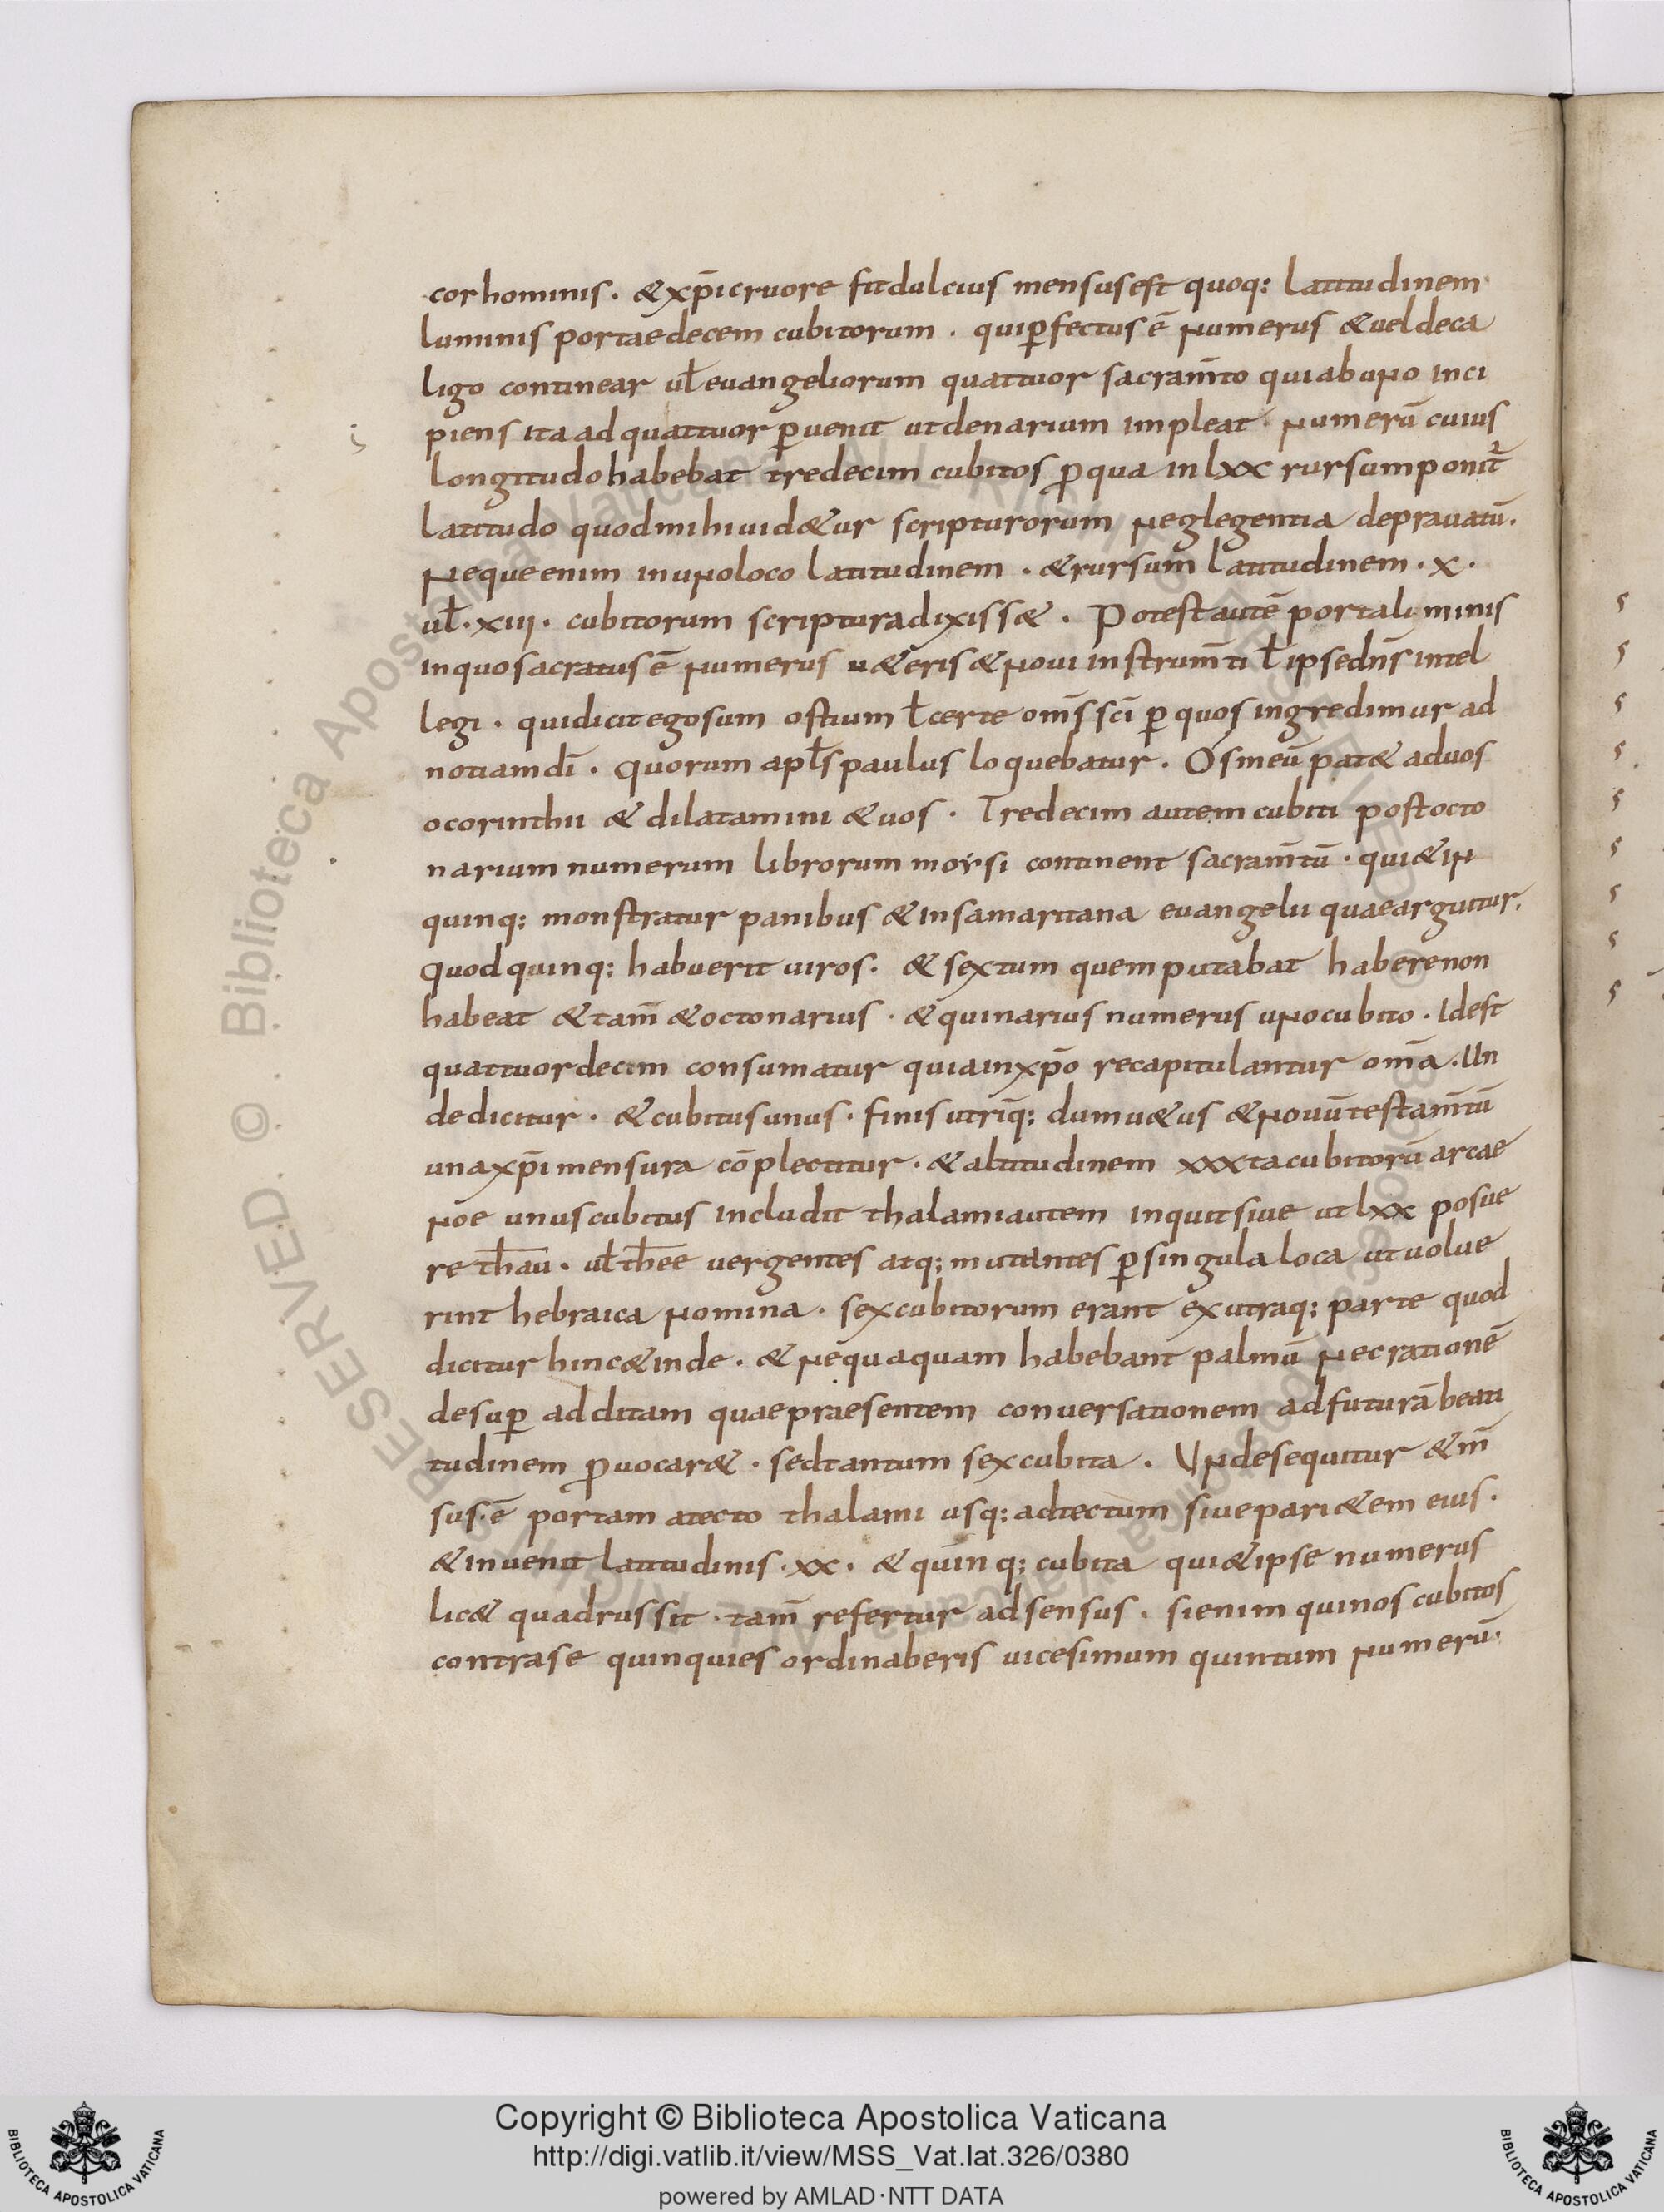 cor hominis. & xp̄i cruore fit dulcius mensus est quoq: latitudinem
luminis portae decem cubitorum. qui p̱fectus ē numerus & uel deca
ligo continear ul̄ euangeliorum quattuor sacram̄to qui ab uno inci
piens ita ad quattuor p̱uenit ut denarium impleat numerū cuius
longitudo habebat tredecim cubitos p̱ qua in lxx rursum ponit᷑
latitudo quod mihi uid&ur scripturorum neglegentia deprauatū.
neque enim in uno loco latitudinem. & rursum latitudinem. x.
ul̄. xiii. cubitorum scriptura dixiss&. Potest autē porta luminis
in quo sacratus ē numerus u&eris & noui instrum̄ti ł ipse dn̄s intel
legi. qui dicit ego sum ostium ł certe om̄s sc̄i p̱ quos ingredimur ad
notiam dī. quorum apl̄s paulus loquebatur. Os meū pat& ad uos
o corinthii & dilatamini & uos. Tredecim autem cubiti post octo
narium numerum librorum moysi continent sacram̄tū. qui & in
quinq: monstratur panibus & in samaritana euangelii quae arguitur.
quod quinq: habuerit uiros. & sextum quem putabat habere non
habeat & tam̄ & octonarius. & quinarius numerus uno cubito. Idest
quattuordecim consumatur quia in xp̄o recapitulantur om̄a. Un
de dicitur. & cubitus unus. finis utriq̄: dum u&us & nouū testam̄tū
una xp̄i mensura cōplectitur. & altitudinem xxxta cubitorū arcae
noe unus cubitus includit thalami autem inquit siue ut lxx posue
re th̄au. ul̄ th̄ee uergentes atq: mutantes p̱ singula loca ut uolue
rint hebraica nomina. sex cubitorum erant ex utraq: parte quod
dicitur hinc & inde. & nequaquam habebant palmū nec rationē
desup̱ additam quae praesentem conuersationem ad futurā beati
tudinem p̱uocar&. sed tantum sex cubita. Unde sequitur & m̄
sus. ē portam a tecto thalami usq: ad tectum siue pari&em eius.
& inuenit latitudinis. xx. & quinq: cubita qui & ipse numerus
lic& quadrus sit. tam̄ refertur ad sensus. si enim quinos cubitos
contra se quinquies ordinaberis uicesimum quintum numerū.
© Biblioteca Apostolica Vaticana
RESERVED.
Copyright © Biblioteca Apostolica Vaticana
http://digi.vatlib.it/view/MSS_Vat.lat.326/0380
powered by AMLAD·NTT DATA
BIBLIOTECA APOSTOLICA VATICANA
BIBLIOTECA APOSTOLICA VATICANA